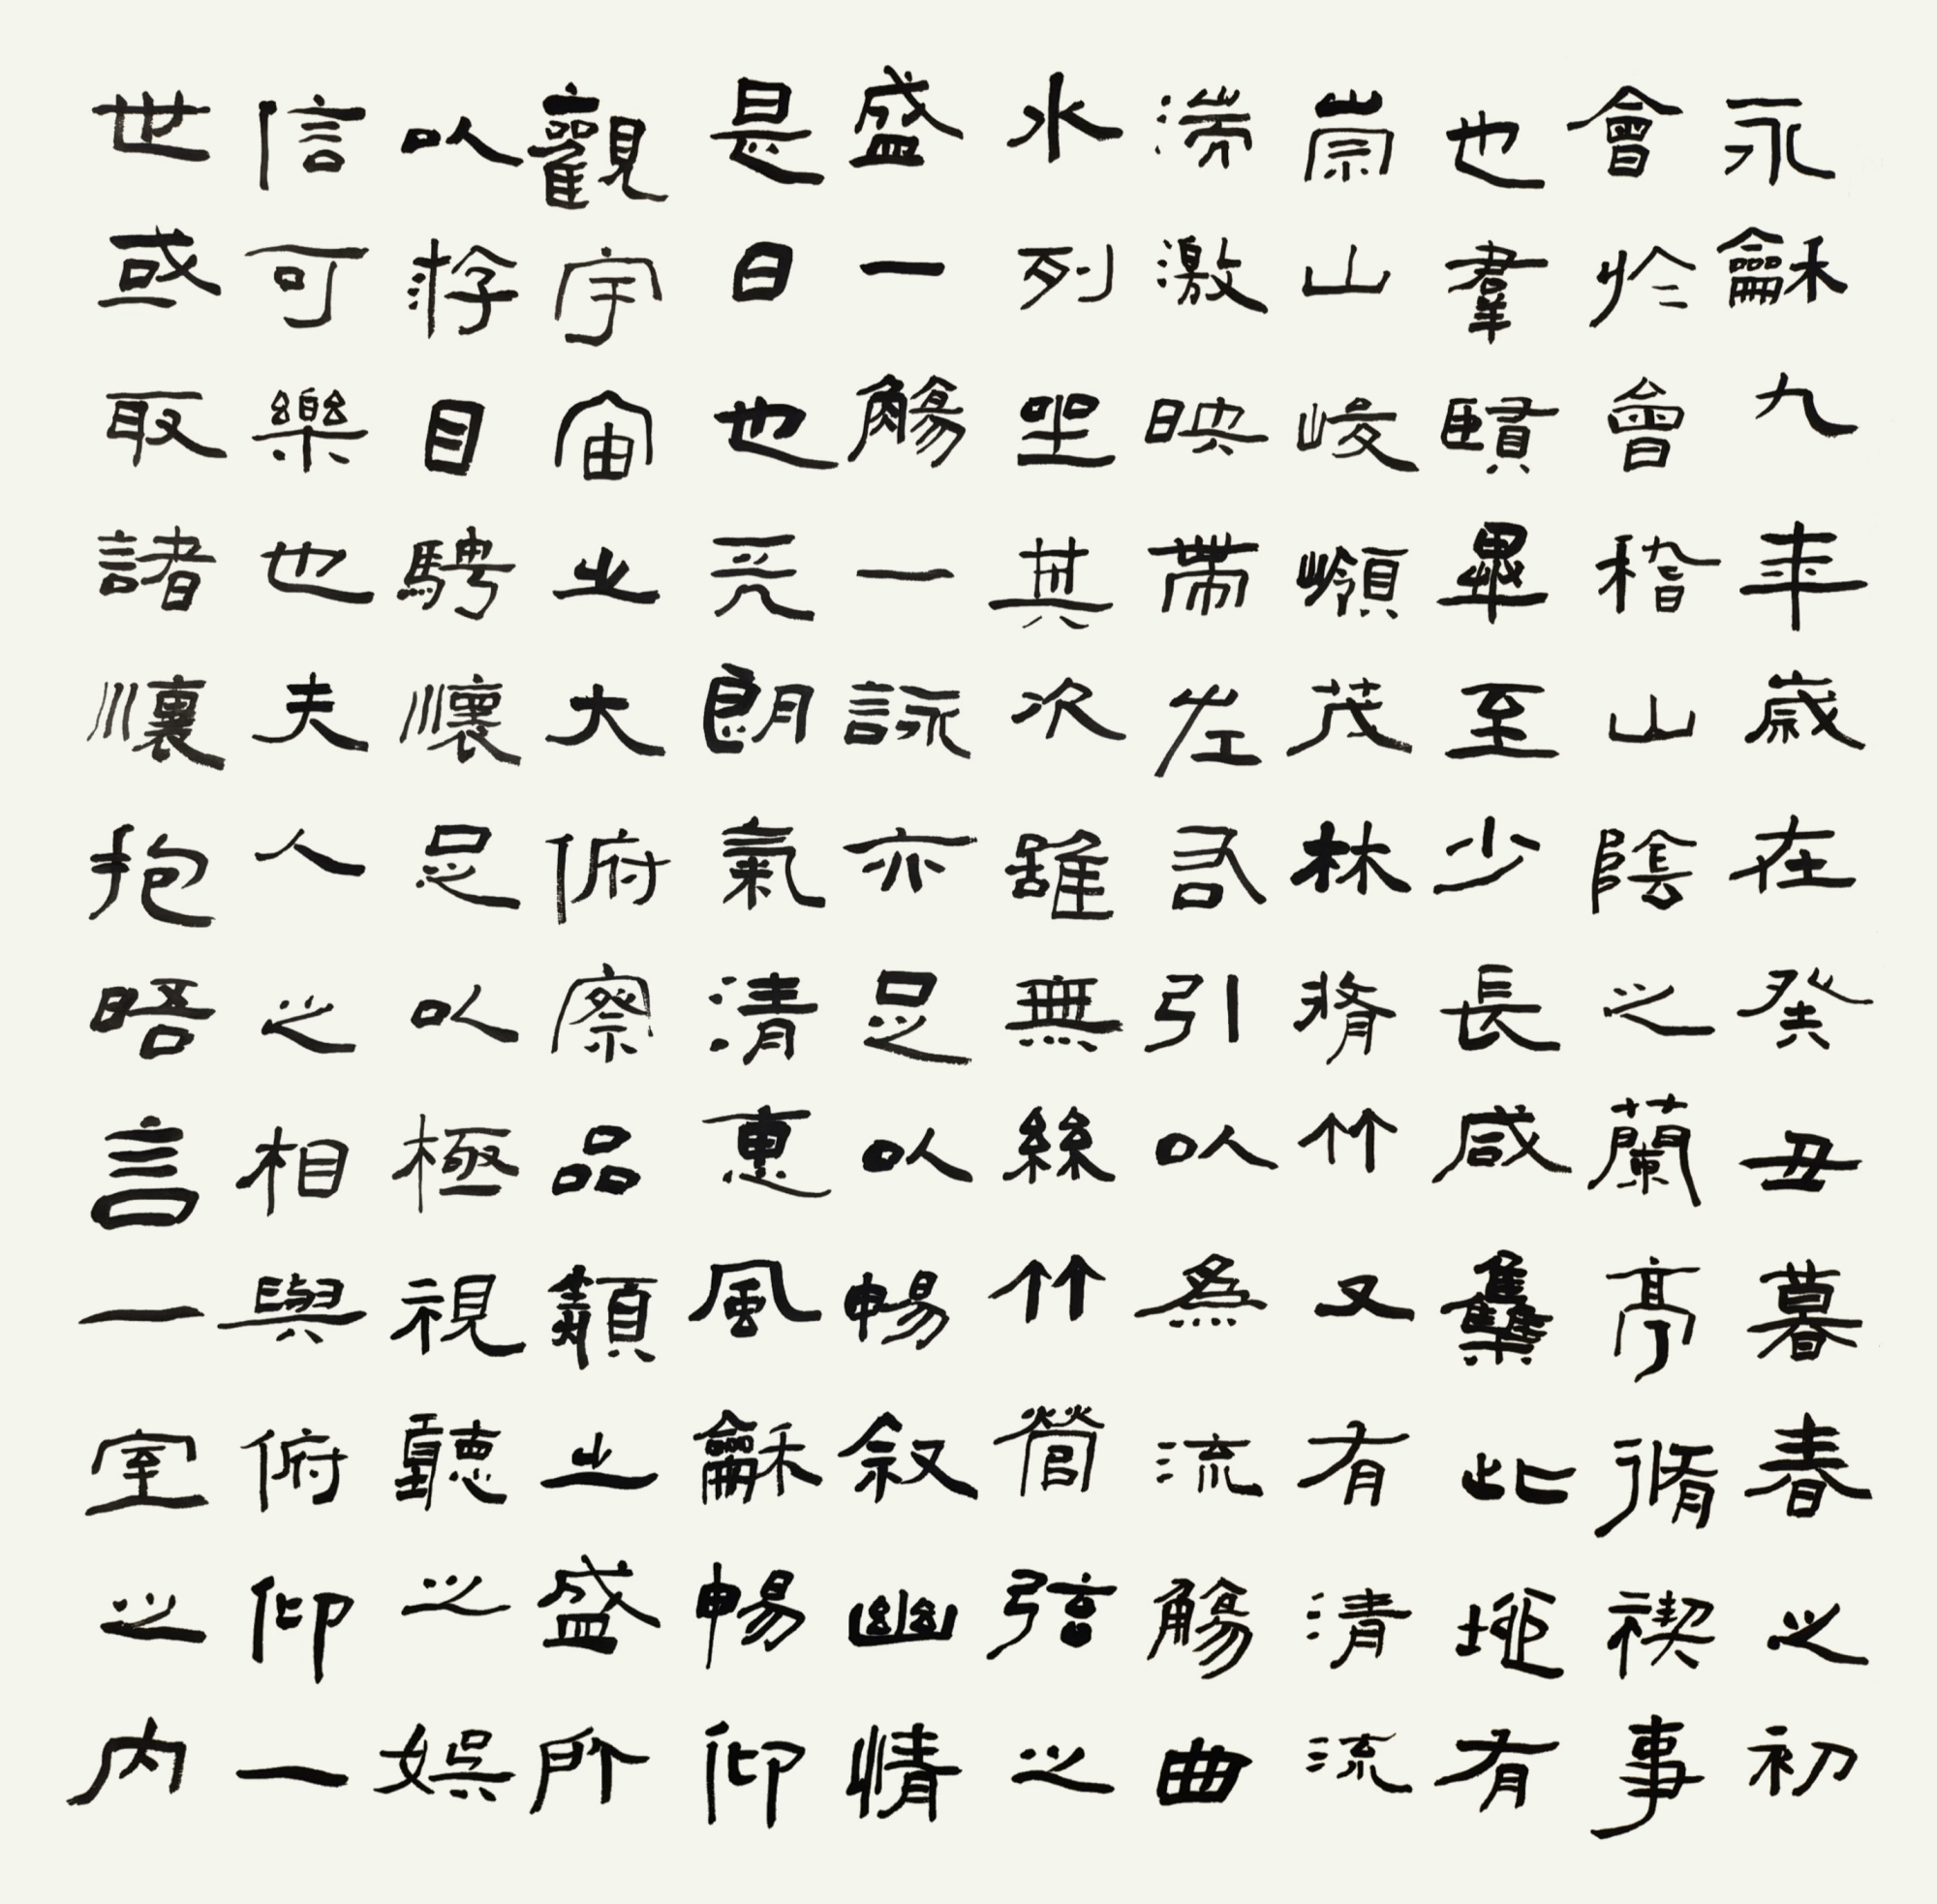 永龢九年歲在癸丑暮春之初
會於會稽山陰之蘭亭脩禊事
也羣賢畢至少長咸雧此地有
崇山峻嶺茂林脩竹又有清流
湍激映帶左右引以為流觴曲
水列坐其次雖無絲竹管弦之
盛一觴一詠亦足以暢敘幽情
是日也天朗氣清惠風龢暢仰
觀宇宙之大俯察品類之盛所
以游目騁懷足以極視聽之娛
信可樂也夫人之相與俯仰一
世或取諸懷抱晤言一室之內